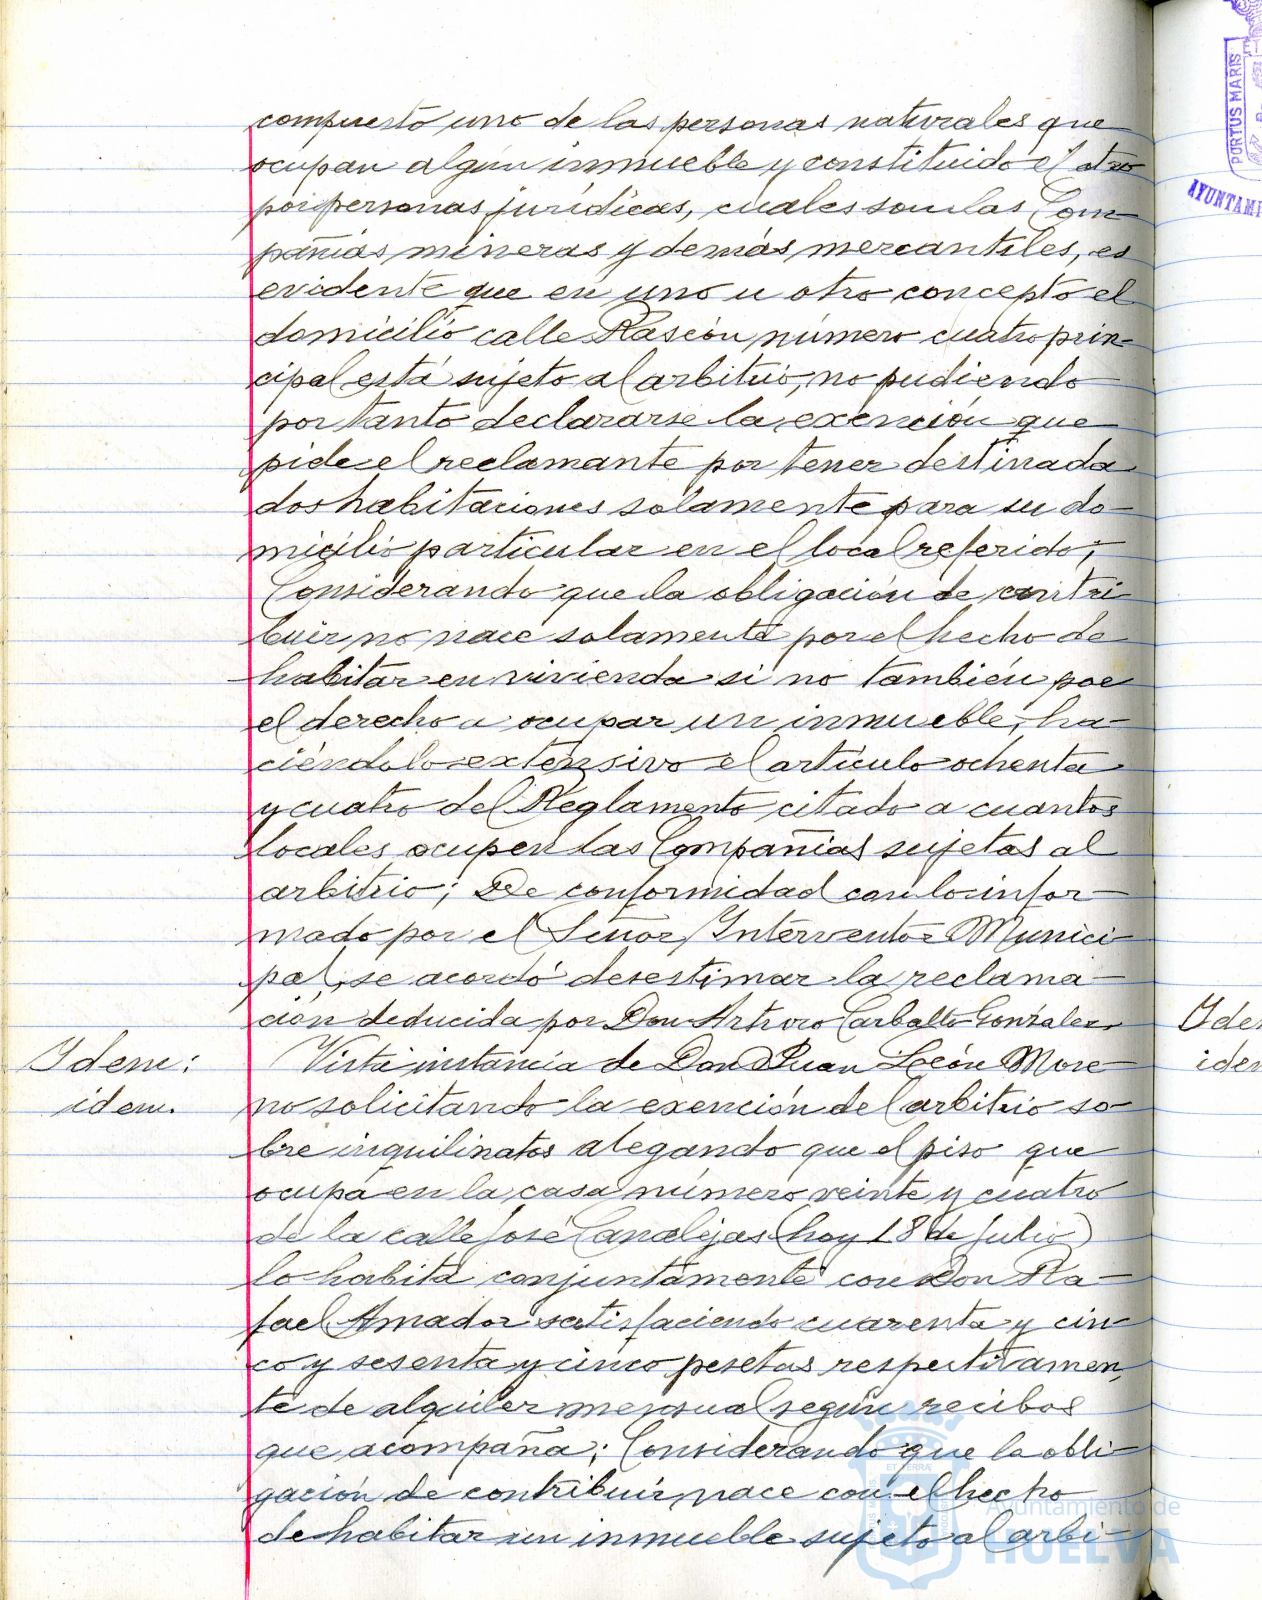 compuesto uno de las personas naturales que
ocupan algún inmueble y constituido el otro
por personas jurídicas, cuales son las Com-
pañías mineras y demás mercantiles, es
evidente que en uno u otro concepto el
domicilio calle Rascón número cuatro prin-
cipal está sujeto al arbitrio, no pudiendo
por tanto declararse la exención que
pide el reclamante por tener destinada
dos habitaciones solamente para su do-
micilio particular en el local referido;
Considerando que la obligación de contri-
buir no nace solamente por el hecho de
habitar en vivienda si no también por
el derecho a ocupar un inmueble, ha-
ciéndolo extensivo el artículo ochenta
y cuatro del Reglamento citado a cuantos
locales ocupen las Compañías sujetas al
arbitrio; De conformidad con lo infor-
mado por el Señor Interventor Munici-
pal, se acordó desestimar la reclama-
ción deducida por Don Arturo Carballo González.
Idem:
idem.
Vista instancia de Don Juan León More-
no solicitando la exención del arbitrio so-
bre inquilinatos alegando que el piso que
ocupa en la casa número veinte y cuatro
de la calle José Canalejas (hoy 18 de Julio)
lo habita conjuntamente con Don Ra-
fael Amador satisfaciendo cuarenta y cin-
co y sesenta y cinco pesetas respectivamen-
te de alquiler mensual según recibos
que acompaña; Considerando que la obli-
gación de contribuir nace con el hecho
de habitar un inmueble sujeto al arbi-
PORTUS MARIS
AYUNTAMI
Ide
ide
Ayuntamiento de
HUELVA